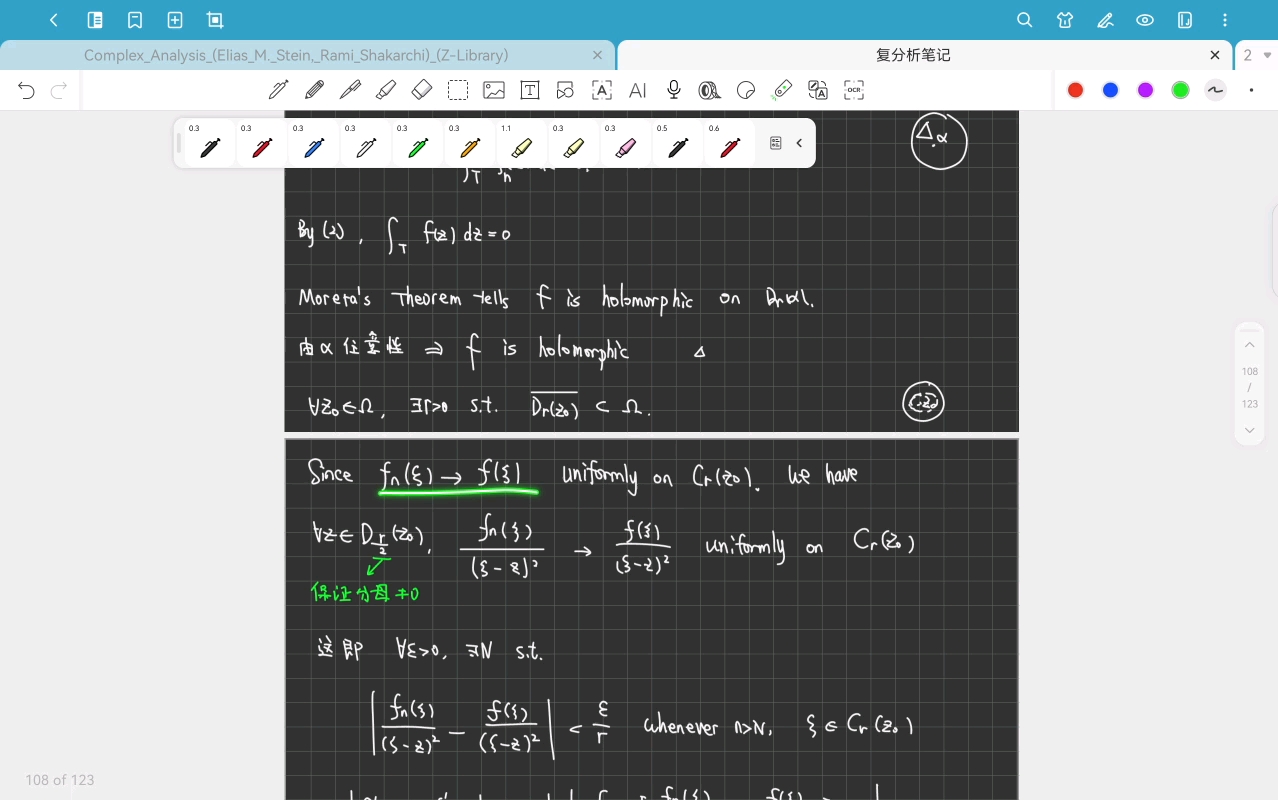 Complex_Analysis_(Elias_M._Stein,_Rami_Shakarchi)_(Z-Library)
复分析笔记
2
T
A
AI
A
OCR
0.3 0.3 0.3 0.3 0.3 0.3 1.1 0.3 0.3 0.5 0.6
Δ.α
By (2), ∫_T f(z) dz = 0
Morera's Theorem tells f is holomorphic on Dr(α).
由α任意性 ⇒ f is holomorphic Δ
∀z₀∈Ω, ∃r>0 s.t. \overline{Dr(z₀)} ⊂ Ω.
Since fn(ξ) → f(ξ) uniformly on Cr(z₀). We have
∀z ∈ D_{r/2}(z₀), fn(ξ)/(ξ-z)² → f(ξ)/(ξ-z)² uniformly on Cr(z₀)
保证分母≠0
这即 ∀ε>0, ∃N s.t.
| fn(ξ)/(ξ-z)² − f(ξ)/(ξ-z)² | < ε/r whenever n>N, ξ ∈ Cr(z₀)
108
/
123
108 of 123